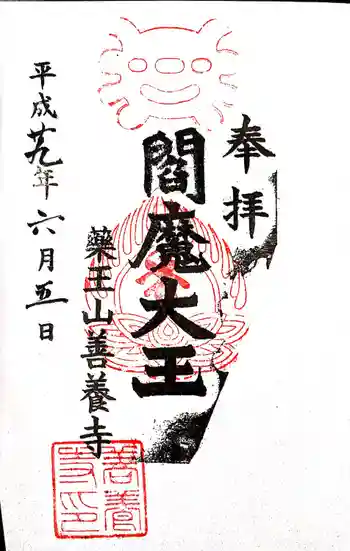 奉拝
閻魔大王
藥王山善養寺
平成廿九年六月五日
善養寺印